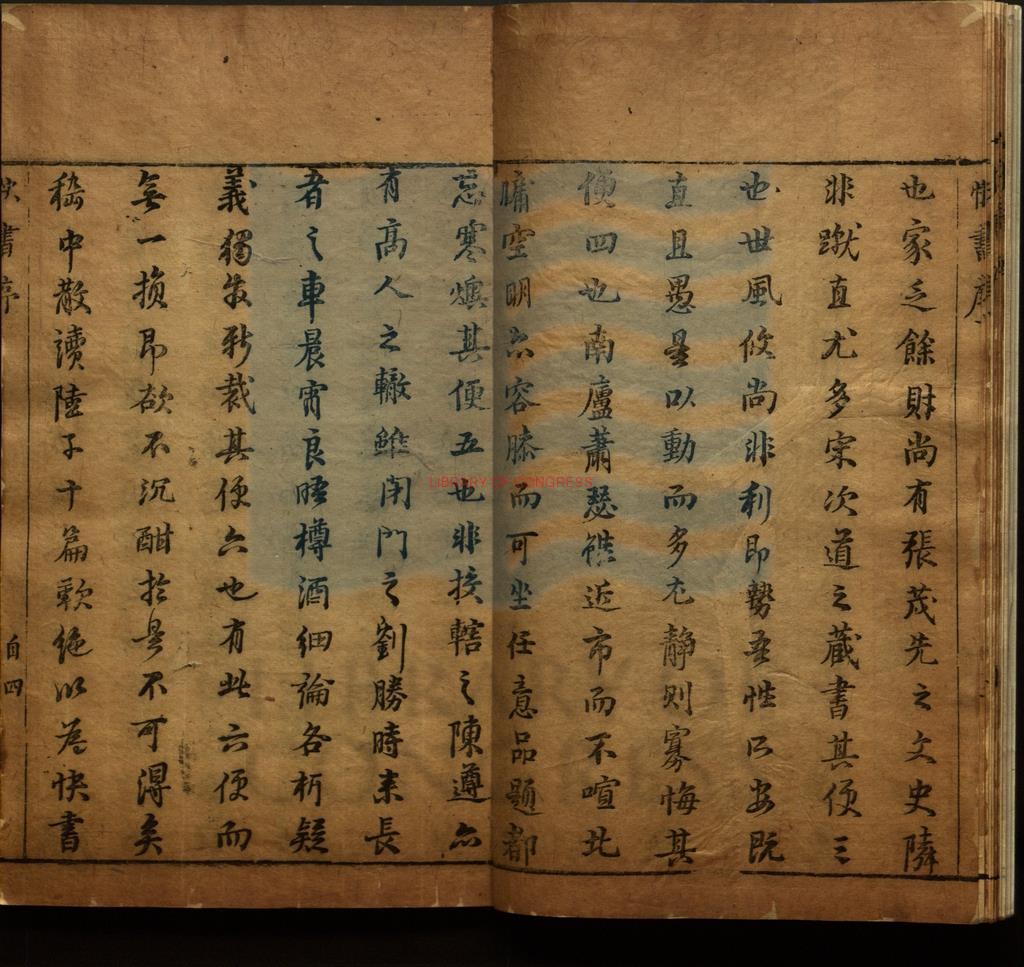 快書序
也家乏餘財尚有張茂先之文史隣
非蹴直尤多宋次道之藏書其便三
也世風倏尚非利即勢吾性所安既
直且愚是以動而多尤静则寡悔其
便四也南廬蕭瑟雖近市而不喧北
牖空明亦容膝而可坐任意品题都
忘寒燠其便五也非投轄之陳遵亦
有高人之轍雖閉門之劉勝時来長
者之車晨宵良晤樽酒細論各析疑
義獨出新裁其便六也有此六便而
無一损即欲不沉酣於是不可得矣
嵇中散讀陸子十篇歎絶以為快書
快書序
自四
LIBRARY OF CONGRESS